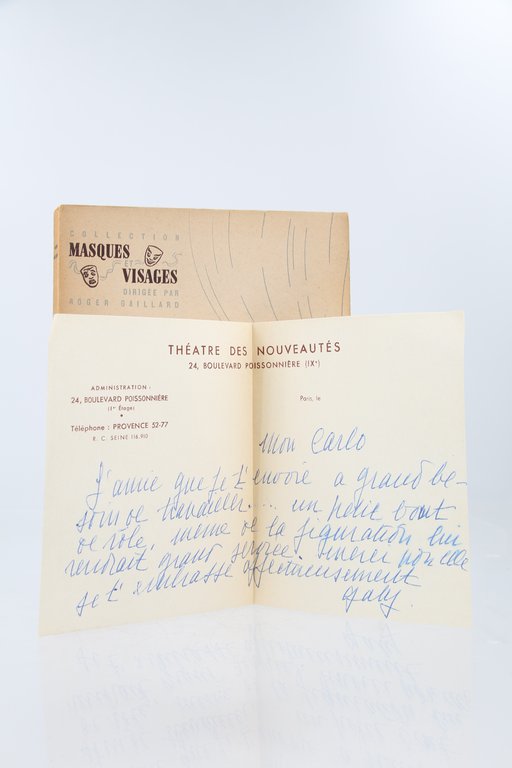 COLLECTION
MASQUES
ET
VISAGES
DIRIGÉE PAR
ROGER GAILLARD
THÉATRE DES NOUVEAUTÉS
24, BOULEVARD POISSONNIÈRE (IXe)
ADMINISTRATION :
24, BOULEVARD POISSONNIÈRE
(1er Étage)
Téléphone : PROVENCE 52-77
R. C. SEINE 116.910
Paris, le
Mon Carlo
L'amie que je t'envoie a grand be-
soin de travailler... un petit bout
de rôle, même de la figuration lui
rendrait grand service. merci pour elle
je t'embrasse affectueusement
Gaby.